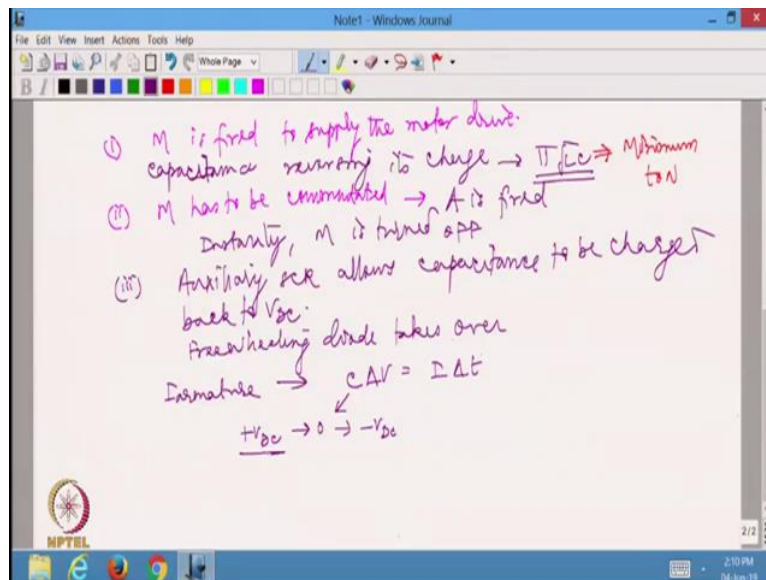 Note1 - Windows Journal
File Edit View Insert Actions Tools Help
Whole Page
(i) M is fired to supply the motor drive.
capacitance reversing its charge → π√LC ⇒ Minimum
ton
(ii) M has to be commutated → A is fired
Instantly, M is turned off
(iii) Auxiliary SCR allows capacitance to be charged
back to VDC.
Freewheeling diode takes over
Iarmature → CΔV = IΔt
+VDC → 0 → -VDC
NPTEL
2/2
2:10 PM
04-Jun-19